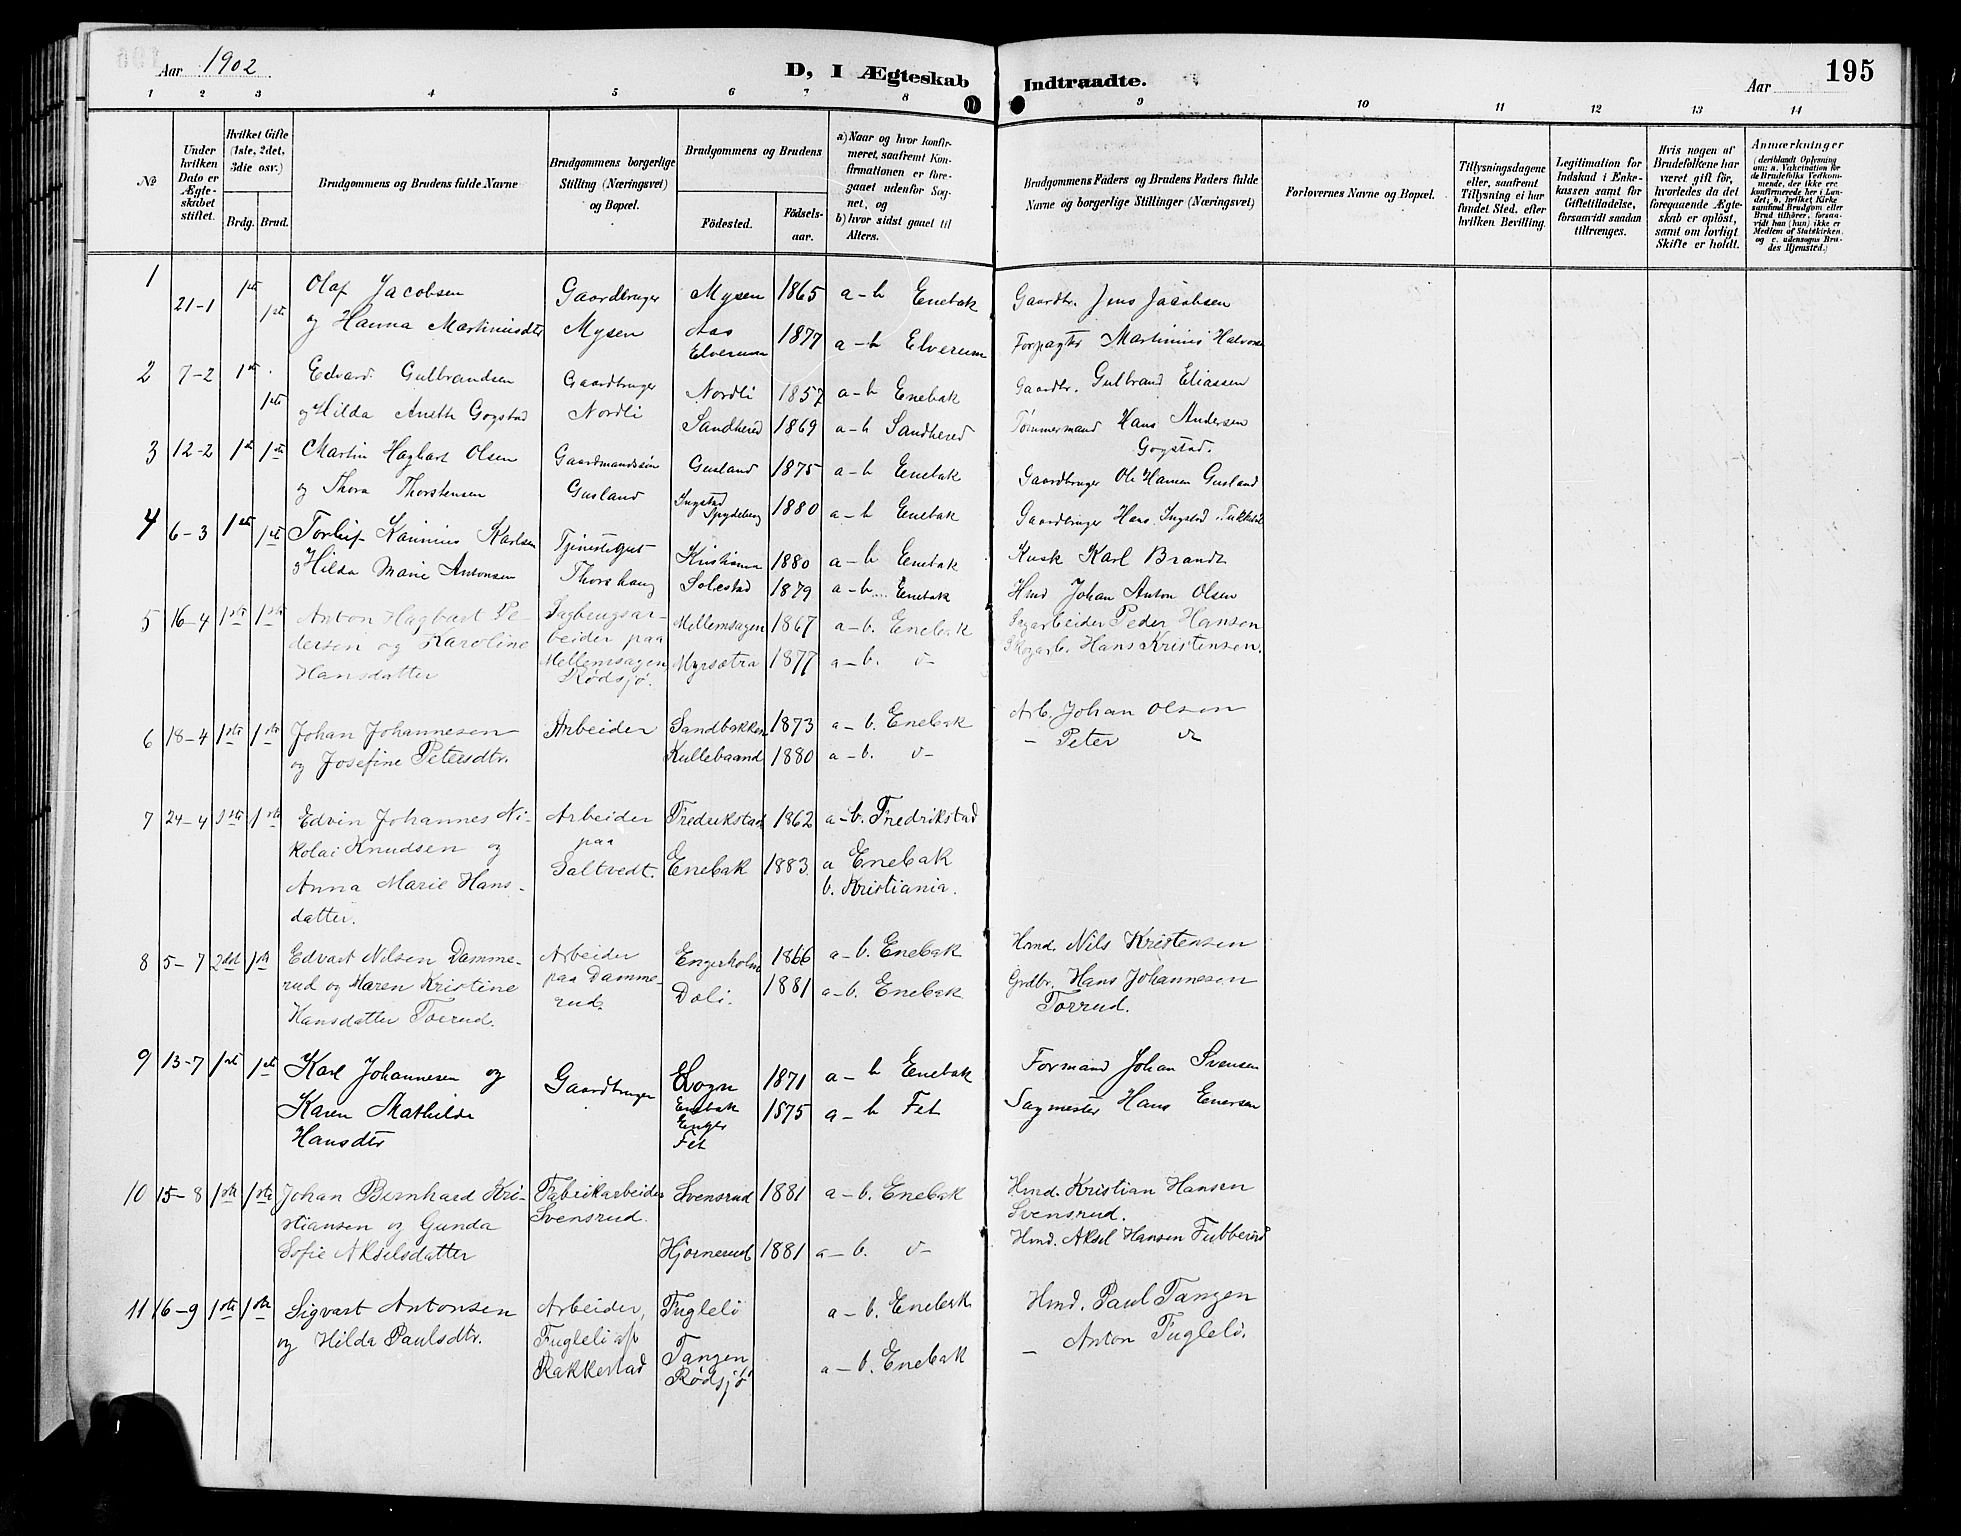 Aar 1902
D, I Ægteskab Indtraadte.
Aar
195
1 2 3 4 5 6 7 8 9 10 11 12 13 14
No
Under hvilken Dato er Ægteskabet stiftet.
Hvilket Gifte (1ste, 2det, 3die osv.)
Brdg. Brud.
Brudgommens og Brudens fulde Navne
Brudgommens borgerlige Stilling (Næringsvei) og Bopæl.
Brudgommens og Brudens
Fødested. Fødselsaar.
a) Naar og hvor konfirmeret, saafremt Konfirmationen er foregaaet udenfor Sognet, og
b) hvor sidst gaaet til Alters.
Brudgommens Faders og Brudens Faders fulde Navne og borgerlige Stillinger (Næringsvei)
Forlovernes Navne og Bopæl.
Tillysningsdagene eller, saafremt Tillysning ei har fundet Sted, efter hvilken Bevilling.
Legitimation for Indskud i Enkekassen samt for Giftetilladelse, forsaavidt saadan tiltrænges.
Hvis nogen af Brudefolkene har været gift før, hvorledes da det foregaaende Ægteskab er opløst, samt om lovligt Skifte er holdt.
Anmærkninger
(deriblandt Oplysning om: a. Vakcination for de Brudefolks Vedkommende, der ikke ere konfirmerede her i Landet; b. hvilket Kirkesamfund Brudgom eller Brud tilhører, forsaavidt han (hun) ikke er Medlem af Statskirken, og c. udensogns Brudes Hjemsted.)
1 21-1 1ste 1ste Olaf Jacobsen Gaardbruger Mysen 1865 a-b Enebak Gaardbr. Jens Jacobsen
og Hanna Martiniusdtr Mysen Aas Elverum 1877 a-b Elverum Forpagter Martinius Halvorsen
2 7-2 1ste 1ste Edvard Gulbrandsen Gaardbruger Nordli 1857 a-b Enebak Gaardbr. Gulbrand Eliassen
og Hilda Aneth Gogstad Nordli Sandhered 1869 a-b Sandhered Tømmermand Hans Andersen
Gogstad.
3 12-2 1ste 1ste Martin Hagbart Olsen Gaardmandssøn Gusland 1875 a-b Enebak Gaardbruger Ole Hansen Gusland
og Thora Thorstensen Gusland Ingstad Spydeberg 1880 a-b Enebak Gaardbruger Hans Ingstad
4 6-3 1ste 1ste Torleif Karsen Tjenestegut Kristiania 1880 a-b Enebak Kusk Karl Brandt
og Hilda Marie Antonsen Thorshaug Solestad 1879 a-b Enebak Hmd Johan Anton Olsen
5 16-4 1ste 1ste Anton Hagbart Pe- Sagbrugsar- Mellemsagen 1867 a-b. Enebak Sagarbeider Peder Hansen
dersen og Karoline beider paa Skogarb. Hans Kristensen.
Hansdatter Mellemsagen Myrsætra 1877 a-b.
Rødsjø.
6 18-4 1ste 1ste Johan Johannesen Arbeider Sandbakken 1873 a-b. Enebak Arb. Johan Olsen
og Josefine Petersdtr. Kullebaand 1880 a-b. - Peter
7 24-4 1ste 1ste Edvin Johannes Ni- Arbeider Fredrikstad 1862 a-b. Fredrikstad
kolai Knudsen og paa
Anna Marie Hans- Saltvedt. Enebak 1883 a Enebak
datter. b. Kristiania.
8 5-7 2det 1ste Edvart Nilsen Damme- Arbeider Engerholm 1866 a-b. Enebak Hmd. Nils Kristensen
rud og Maren Kristine paa Damme- Dali. 1881 a-b. Enebak Grdbr. Hans Johannesen
Hansdatter Torrud. rud. Torrud.
9 13-7 1ste 1ste Karl Johannesen og Gaardbruger Sogn 1871 a-b Enebak Formand Johan Svensen
Karen Mathilde Enebak 1875 a-b Fet Sagmester Hans Enersen
Hansdtr Enger Fet
10 15-8 1ste 1ste Johan Bernhard Kri- Fabrikarbeider Svensrud 1881 a-b. Enebak Hmd. Kristian Hansen
stiansen og Gunda Svensrud. Svensrud.
Sofie Akselsdatter Hjørnerud 1881 a-b. Hmd. Aksel Hansen
11 16-9 1ste 1ste Sigvart Antonsen Arbeider, Fuglelö a-b. Enebak Hmd. Paul Tangen
og Hilda Paulsdtr. Fuglelö af Tangen - Anton Fuglelö.
Rakkestad Rødsjø a-b. Enebak